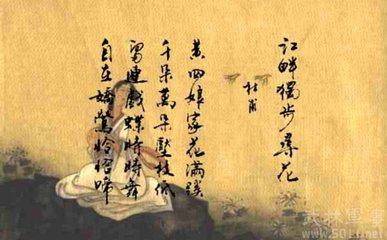 江畔獨步尋花
杜甫
黄四娘家花滿蹊
千朵萬朵壓枝低
留連戲蝶時時舞
自在嬌鶯恰恰啼
武林軍事
www.501f.net